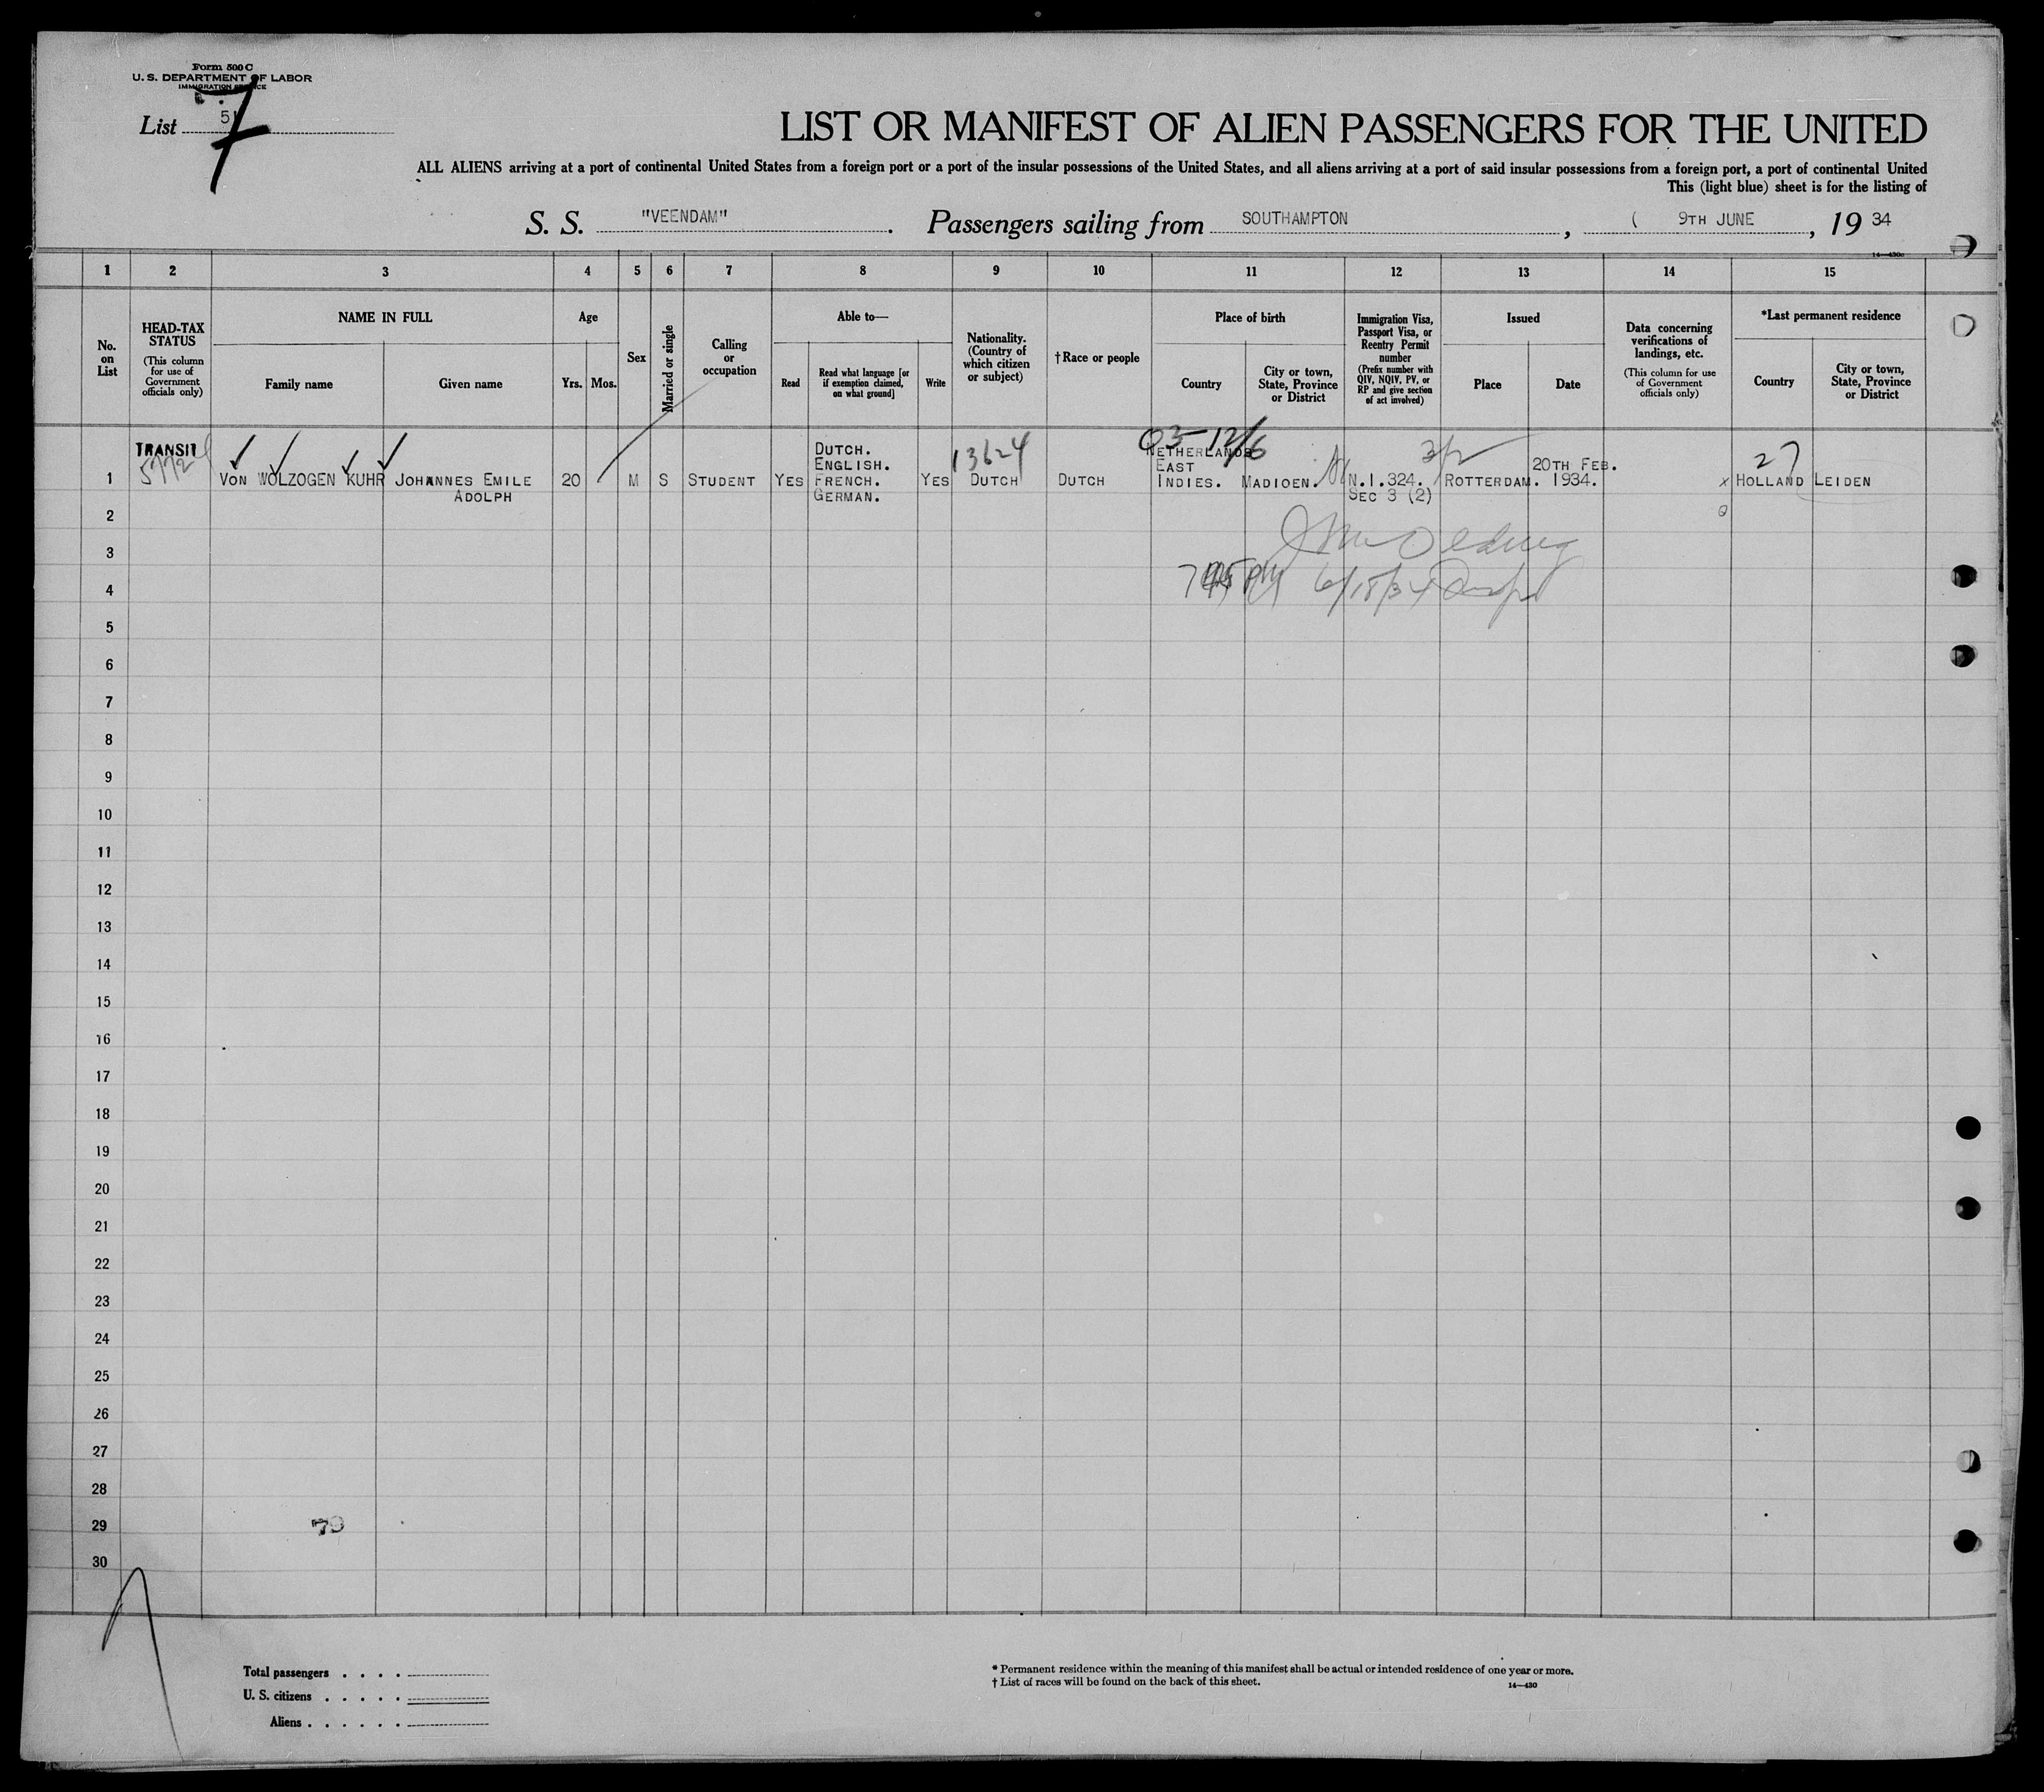 Form 500 C
U. S. DEPARTMENT OF LABOR
IMMIGRATION SERVICE
List 5
7
LIST OR MANIFEST OF ALIEN PASSENGERS FOR THE UNITED
ALL ALIENS arriving at a port of continental United States from a foreign port or a port of the insular possessions of the United States, and all aliens arriving at a port of said insular possessions from a foreign port, a port of continental United
This (light blue) sheet is for the listing of
S. S. "VEENDAM". Passengers sailing from SOUTHAMPTON, ( 9TH JUNE, 19 34
14—430c
1 2 3 4 5 6 7 8 9 10 11 12 13 14 15
No. on List
HEAD-TAX STATUS
(This column for use of Government officials only)
NAME IN FULL
Family name
Given name
Age
Yrs. Mos.
Sex
Married or single
Calling or occupation
Able to—
Read
Read what language [or if exemption claimed, on what ground]
Write
Nationality. (Country of which citizen or subject)
†Race or people
Place of birth
Country
City or town, State, Province or District
Immigration Visa, Passport Visa, or Reentry Permit number
(Prefix number with QIV, NQIV, PV, or RP and give section of act involved)
Issued
Place
Date
Data concerning verifications of landings, etc.
(This column for use of Government officials only)
*Last permanent residence
Country
City or town, State, Province or District
TRANSIT
DUTCH.
13624
03-12/6
NETHERLANDS
27
ENGLISH.
EAST
20TH FEB.
1 VON WOLZOGEN KUHR JOHANNES EMILE 20 M S STUDENT YES FRENCH. YES DUTCH DUTCH INDIES. MADIOEN. N.I.324. ROTTERDAM. 1934. x HOLLAND LEIDEN
ADOLPH GERMAN. SEC 3 (2)
2
3
4 PM 6/18/34
5
6
7
8
9
10
11
12
13
14
15
16
17
18
19
20
21
22
23
24
25
26
27
28
29 79
30
Total passengers . . . .
U. S. citizens . . . . .
Aliens . . . . . .
* Permanent residence within the meaning of this manifest shall be actual or intended residence of one year or more.
† List of races will be found on the back of this sheet.
14—430